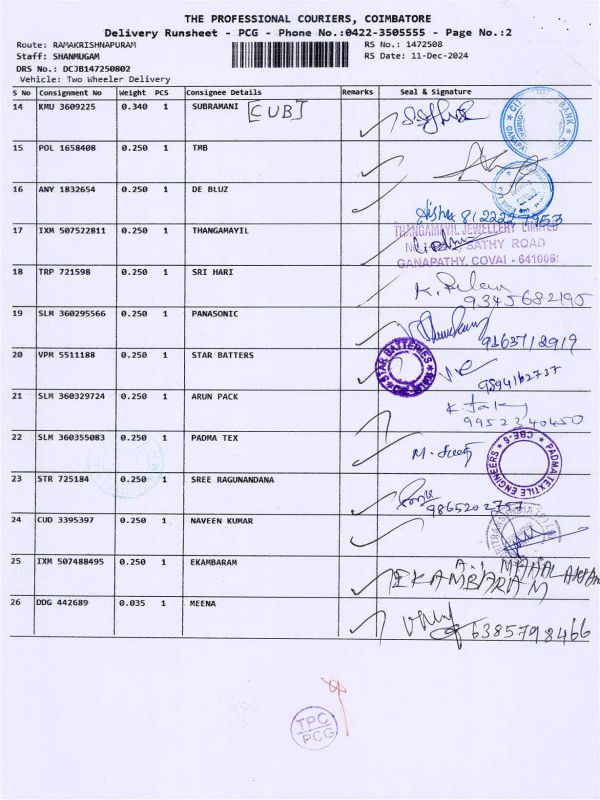 THE PROFESSIONAL COURIERS, COIMBATORE
Delivery Runsheet - PCG - Phone No.:0422-3505555 - Page No.:2
Route: RAMAKRISHNAPURAM RS No.: 1472508
Staff: SHANMUGAM RS Date: 11-Dec-2024
DRS No.: DCJB147250802
Vehicle: Two Wheeler Delivery
S No Consignment No Weight PCS Consignee Details Remarks Seal & Signature
14 KMU 3609225 0.340 1 SUBRAMANI [CUB]
15 POL 1658408 0.250 1 TMB
16 ANY 1832654 0.250 1 DE BLUZ
17 IXM 507522811 0.250 1 THANGAMAYIL
THANGAMAYIL JEWELLERY LIMITED
SATHY ROAD
GANAPATHY, COVAI - 641006
18 TRP 721598 0.250 1 SRI HARI
9345682195
19 SLM 360295566 0.250 1 PANASONIC
20 VPM 5511188 0.250 1 STAR BATTERS
STAR BATTERIES
9894162737
21 SLM 360329724 0.250 1 ARUN PACK
9952240450
22 SLM 360355083 0.250 1 PADMA TEX
PADMA TEXTILE ENGINEERS CBE-6
23 STR 725184 0.250 1 SREE RAGUNANDANA
9865202757
24 CUD 3395397 0.250 1 NAVEEN KUMAR
25 IXM 507488495 0.250 1 EKAMBARAM
MAHAL
EKAMBARAM
26 DDG 442689 0.035 1 MEENA
6385798466
TPC
PCG